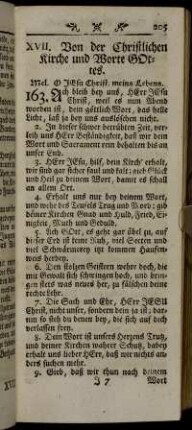 205
XVII. Von der Christlichen
Kirche und Worte GOt-
tes.
Mel. O JEsu Christ, meins Lebens.
163. Ach bleib bey uns, HErr JEsu
Christ, weil es nun Abend
worden ist, dein göttlich Wort, das helle
Licht, laß ja bey uns auslöschen nicht.
2. In dieser schwer betrübten Zeit, ver-
leyh uns HErr Beständigkeit, daß wir dein
Wort und Sacrament rein behalten bis an
unser End.
3. HErr JEsu, hilf, dein Kirch' erhalt,
wir sind gar sicher faul und kalt: gieb Glück
und Heil zu deinem Wort, damit es schall
an allem Ort.
4. Erhalt uns nur bey deinem Wort,
und wehr des Teufels Trug und Mord: gib
deiner Kirchen Gnad und Huld, Fried, Ei-
nigkeit, Muth und Gedult.
5. Ach GOtt, es geht gar übel zu, auf
dieser Erd ist keine Ruh, viel Secten und
viel Schwärmerey itzt kommen Haufen-
weis herbey.
6. Den stolzen Geistern wehre doch, die
mit Gewalt sich schwingen hoch, und brin-
gen stets was neues her, zu fälschen deine
rechte Lehr.
7. Die Sach und Ehr, HErr JESU
Christ, nicht unser, sondern dein ja ist: da-
rum so steh du denen bey, die sich auf dich
verlassen frey.
8. Dein Wort ist unsers Herzens Trutz,
und deiner Kirchen wahrer Schutz, dabey
erhalt uns lieber HErr, daß wir nichts an-
ders suchen mehr.
9. Gieb, daß wir thun nach deinem
J 7 Wort